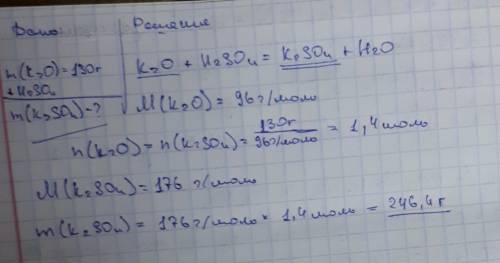 Дано:
m(K2O)=130г
+H2SO4
m(K2SO4)-?
Решение
K2O + H2SO4 = K2SO4 + H2O
M(K2O) = 96 г/моль
n(K2O) = n(K2SO4) = 130г/96г/моль = 1,4 моль
M(K2SO4) = 176 г/моль
m(K2SO4) = 176 г/моль * 1,4 моль = 246,4 г